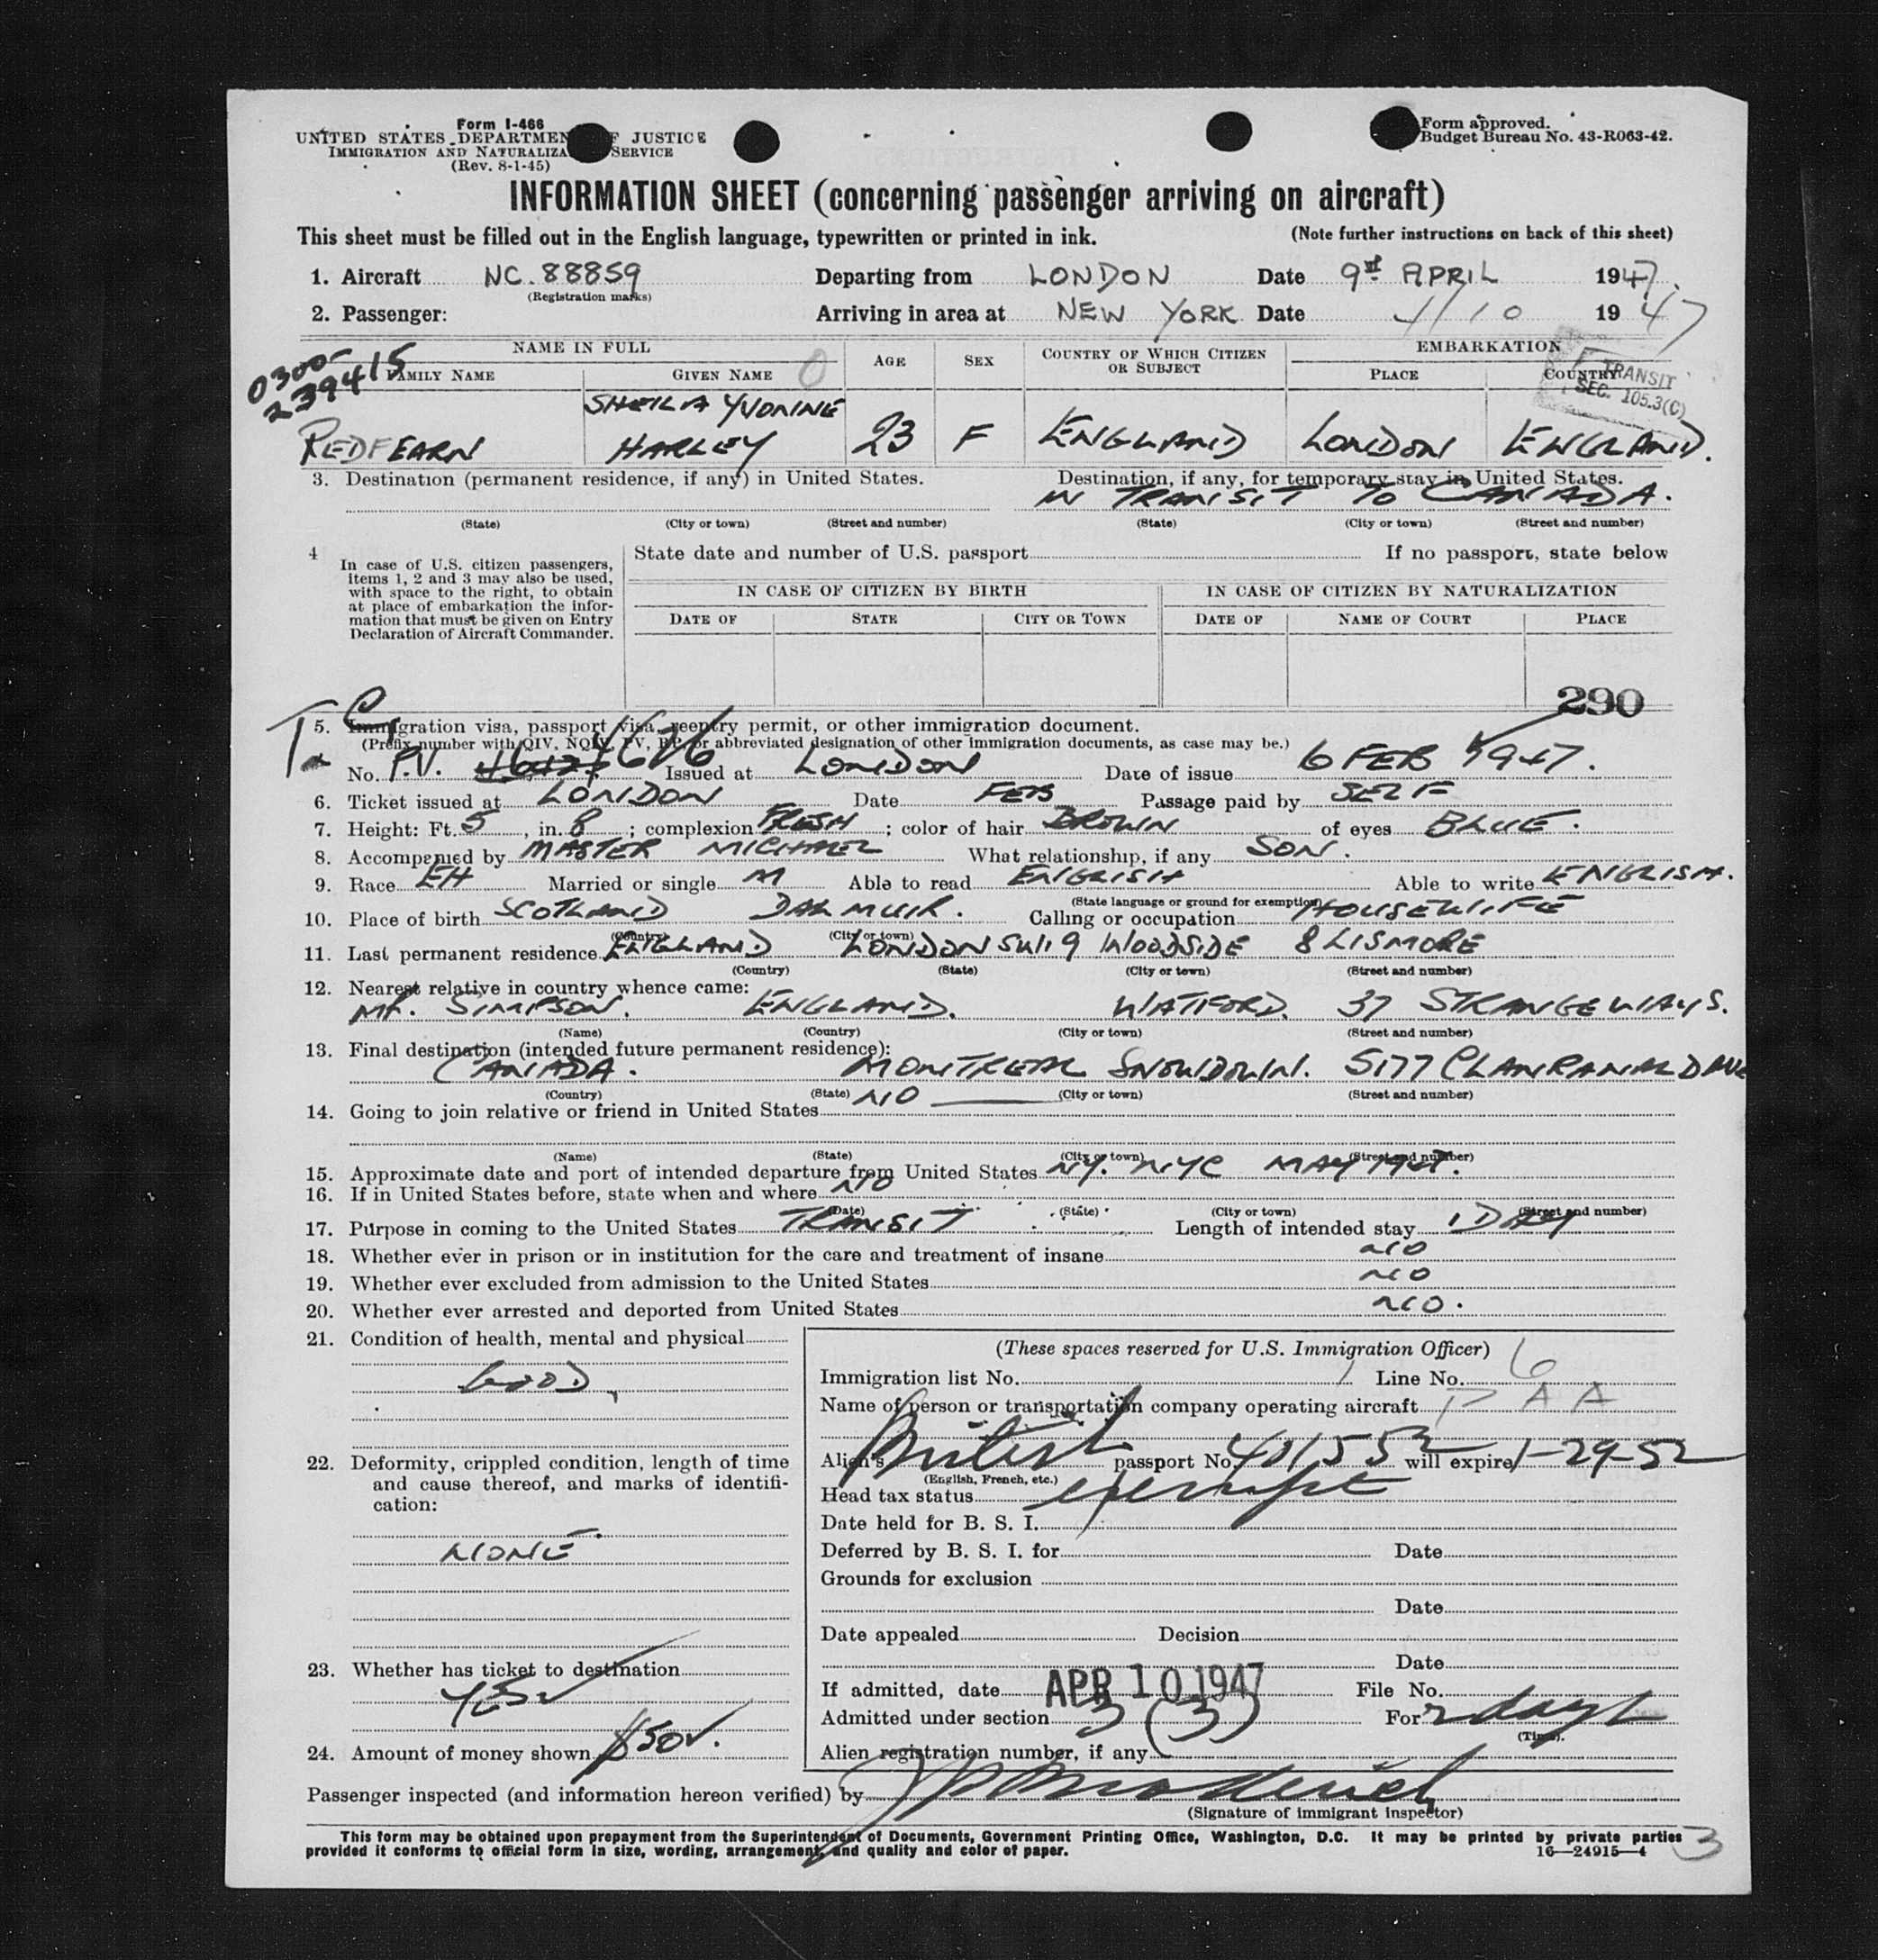 Form I-466
UNITED STATES DEPARTMEN F JUSTICE
IMMIGRATION AND NATURALIZA SERVICE
(Rev. 8-1-45)
Form approved.
Budget Bureau No. 43-R063-42.
INFORMATION SHEET (concerning passenger arriving on aircraft)
This sheet must be filled out in the English language, typewritten or printed in ink. (Note further instructions on back of this sheet)
1. Aircraft NC. 88859 Departing from LONDON Date 9 APRIL 1947.
(Registration marks)
2. Passenger: Arriving in area at NEW YORK Date 4/10 1947
NAME IN FULL AGE SEX COUNTRY OF WHICH CITIZEN OR SUBJECT EMBARKATION
FAMILY NAME GIVEN NAME PLACE COUNTRY
0300-
239415
TRANSIT
SEC. 105.3(C)
SHEILA YVONNE
REDFEARN HARLEY 23 F ENGLAND LONDON ENGLAND.
3. Destination (permanent residence, if any) in United States. Destination, if any, for temporary stay in United States.
IN TRANSIT TO CANADA.
(State) (City or town) (Street and number) (State) (City or town) (Street and number)
4 In case of U.S. citizen passengers, items 1, 2 and 3 may also be used, with space to the right, to obtain at place of embarkation the information that must be given on Entry Declaration of Aircraft Commander.
State date and number of U.S. passport If no passport, state below
IN CASE OF CITIZEN BY BIRTH IN CASE OF CITIZEN BY NATURALIZATION
DATE OF STATE CITY OR TOWN DATE OF NAME OF COURT PLACE
290
5. Immigration visa, passport visa, reentry permit, or other immigration document.
(Prefix number with QIV, NQIV, PV, RP, or abbreviated designation of other immigration documents, as case may be.)
No. P.V. 1676 Issued at LONDON Date of issue 6 FEB 1947.
6. Ticket issued at LONDON Date FEB Passage paid by SELF
7. Height: Ft. 5, in. 8; complexion FRESH; color of hair BROWN of eyes BLUE.
8. Accompanied by MASTER MICHAEL What relationship, if any SON.
9. Race EH Married or single M Able to read ENGLISH Able to write ENGLISH.
(State language or ground for exemption)
10. Place of birth SCOTLAND DALMUIR. Calling or occupation HOUSEWIFE
(Country) (City or town)
11. Last permanent residence ENGLAND LONDON SW19 WOODSIDE 8 LISMORE
(Country) (State) (City or town) (Street and number)
12. Nearest relative in country whence came:
MR. SIMPSON. ENGLAND. WATFORD. 37 STRANGEWAYS.
(Name) (Country) (City or town) (Street and number)
13. Final destination (intended future permanent residence):
CANADA. MONTREAL SNOWDOWN. 5177 CLANRANALD AVE
(Country) (State) (City or town) (Street and number)
14. Going to join relative or friend in United States NO
(Name) (State) (City or town) (Street and number)
15. Approximate date and port of intended departure from United States NY. NYC MAY 1947.
16. If in United States before, state when and where NO
(Date) (State) (City or town) (Street and number)
17. Purpose in coming to the United States TRANSIT Length of intended stay 1 DAY
18. Whether ever in prison or in institution for the care and treatment of insane NO
19. Whether ever excluded from admission to the United States NO
20. Whether ever arrested and deported from United States NO.
21. Condition of health, mental and physical
GOOD,
22. Deformity, crippled condition, length of time and cause thereof, and marks of identification:
NONE
23. Whether has ticket to destination
YES
24. Amount of money shown $50
(These spaces reserved for U.S. Immigration Officer)
Immigration list No. 1 Line No. 6
Name of person or transportation company operating aircraft PAA
Alien's British passport No. 401552 will expire 1-29-52
(English, French, etc.)
Head tax status exempt
Date held for B. S. I.
Deferred by B. S. I. for Date
Grounds for exclusion
Date
Date appealed Decision
Date
If admitted, date APR 10 1947 File No.
Admitted under section 3 (3) For 2 days
(Time).
Alien registration number, if any
Passenger inspected (and information hereon verified) by
(Signature of immigrant inspector)
This form may be obtained upon prepayment from the Superintendent of Documents, Government Printing Office, Washington, D.C. It may be printed by private parties
provided it conforms to official form in size, wording, arrangement, and quality and color of paper. 16—24915—4
3